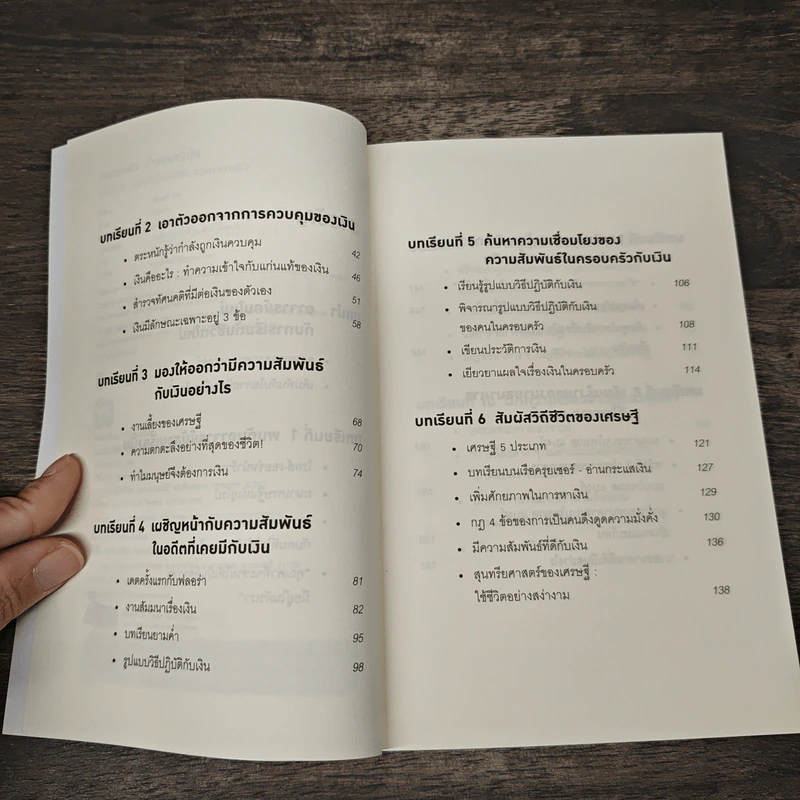 บทเรียนที่ 2 เอาตัวออกจากการควบคุมของเงิน
• ตระหนักรู้ว่ากำลังถูกเงินควบคุม 42
• เงินคืออะไร : ทำความเข้าใจกับแก่นแท้ของเงิน 46
• สำรวจทัศนคติที่มีต่อเงินของตัวเอง 51
• เงินมีลักษณะเฉพาะอยู่ 3 ข้อ 58
บทเรียนที่ 3 มองให้ออกว่ามีความสัมพันธ์
กับเงินอย่างไร
• งานเลี้ยงของเศรษฐี 68
• ความตกตะลึงอย่างที่สุดของชีวิต! 70
• ทำไมมนุษย์จึงต้องการเงิน 74
บทเรียนที่ 4 เผชิญหน้ากับความสัมพันธ์
ในอดีตที่เคยมีกับเงิน
• เดตครั้งแรกกับฟลอร่า 81
• งานสัมมนาเรื่องเงิน 82
• บทเรียนยามค่ำ 95
• รูปแบบวิธีปฏิบัติกับเงิน 98
บทเรียนที่ 5 ค้นหาความเชื่อมโยงของ
ความสัมพันธ์ในครอบครัวกับเงิน
• เรียนรู้รูปแบบวิธีปฏิบัติกับเงิน 106
• พิจารณารูปแบบวิธีปฏิบัติกับเงิน
ของคนในครอบครัว 108
• เขียนประวัติการเงิน 111
• เยียวยาแผลใจเรื่องเงินในครอบครัว 114
บทเรียนที่ 6 สัมผัสวิถีชีวิตของเศรษฐี
• เศรษฐี 5 ประเภท 121
• บทเรียนบนเรือครุยเซอร์ - อ่านกระแสเงิน 127
• เพิ่มศักยภาพในการหาเงิน 129
• กฎ 4 ข้อของการเป็นคนดึงดูดความมั่งคั่ง 130
• มีความสัมพันธ์ที่ดีกับเงิน 136
• สุนทรียศาสตร์ของเศรษฐี :
ใช้ชีวิตอย่างสง่างาม 138